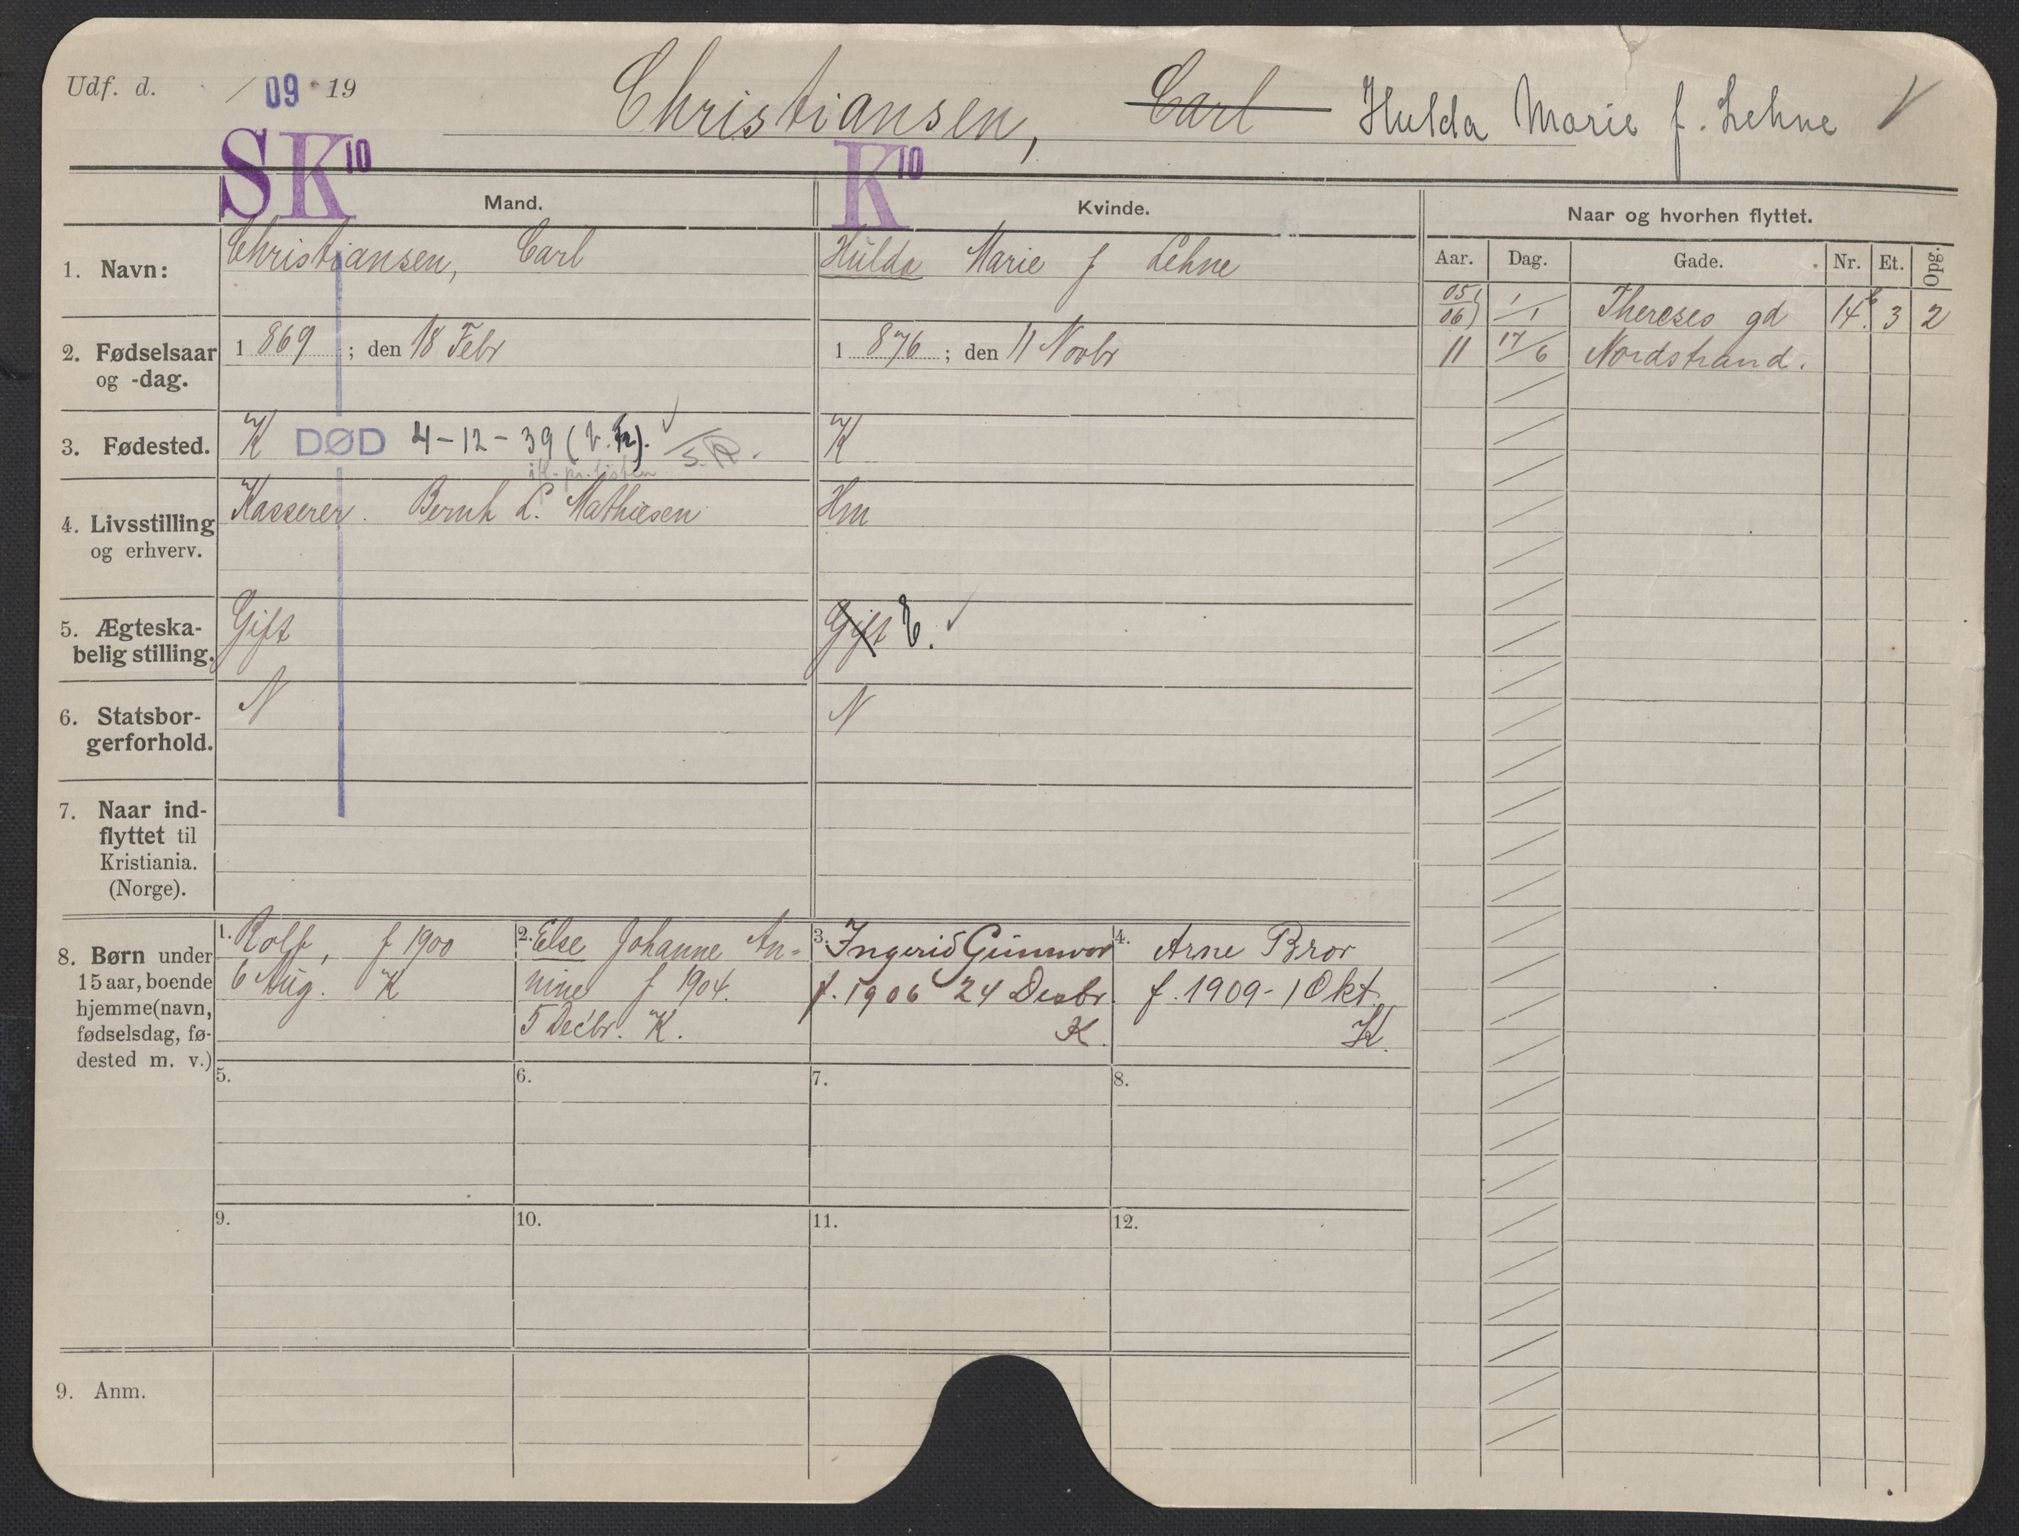 Udf. d. / 09 19
Christiansen, Carl Hulda Marie f. Lehne
SK 10 K 10
Mand. Kvinde. Naar og hvorhen flyttet.
Aar. Dag. Gade. Nr. Et. Opg.
1. Navn: Christiansen, Carl Hulda Marie f Lehne
05/06 1/1 Thereses gd 14b 3 2
11 17/6 Nordstrand.
2. Fødselsaar og -dag. 1 869 ; den 18 Febr 1 876 ; den 11 Novbr
3. Fødested. K DØD 4-12-39 (V. Fr). S.R. K
4. Livsstilling og erhverv. Kasserer. Bernh L. Mathiesen Hm
5. Ægteska-
belig stilling. Gift Gift E.
6. Statsbor-
gerforhold. N N
7. Naar ind-
flyttet til
Kristiania.
(Norge).
8. Børn under
15 aar, boende
hjemme (navn,
fødselsdag, fø-
dested m. v.)
1. Rolf, f 1900
6 Aug. K
2. Else Johanne An-
nine f 1904.
5 Decbr. K.
3. Ingerid Gunnvor
f. 1906 24 Desbr.
K.
4. Arne Bror
f. 1909 - 1 Okt.
K.
5. 6. 7. 8.
9. 10. 11. 12.
9. Anm.